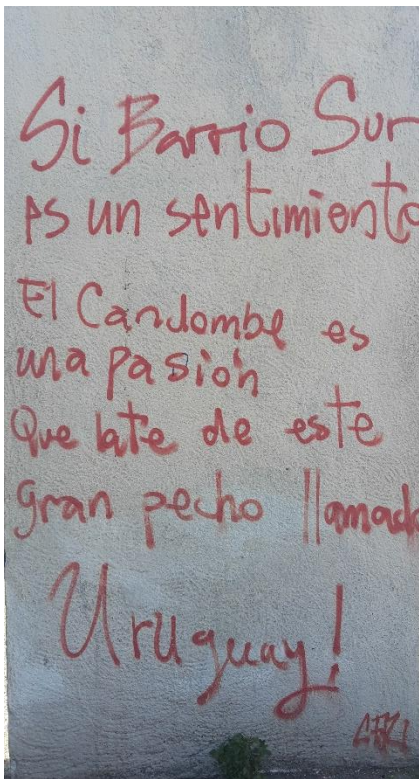 Si Barrio Sur
es un sentimiento
El Candombe es
una pasión
Que late de este
gran pecho llamado
Uruguay!